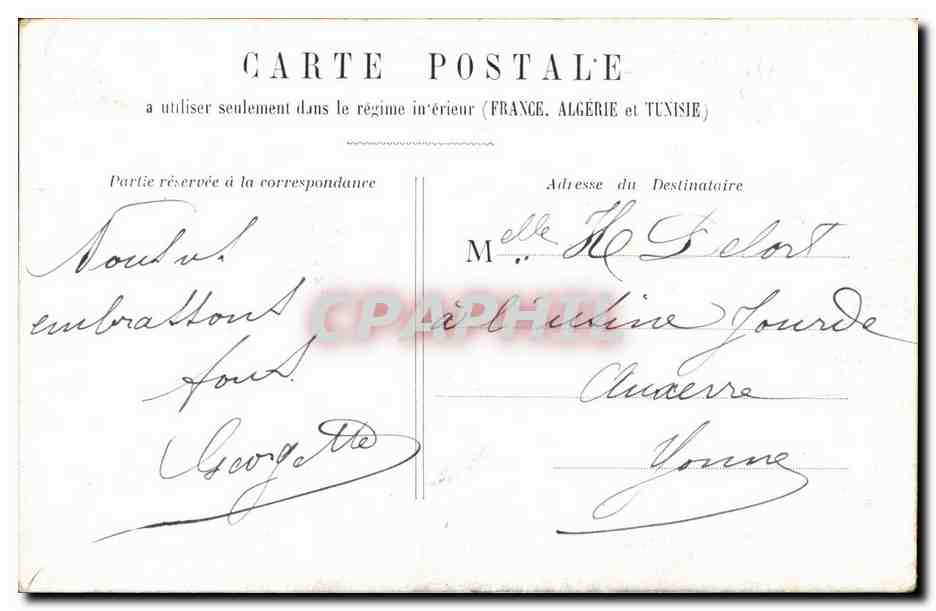 CARTE POSTALE
a utiliser seulement dans le régime intérieur (FRANCE, ALGÉRIE et TUNISIE)
Partie réservée à la correspondance
Adresse du Destinataire
embrassons
tous
Georgette
Melle H Delort
à l'usine Jourde
Auxerre
Yonne
CPAPHIL